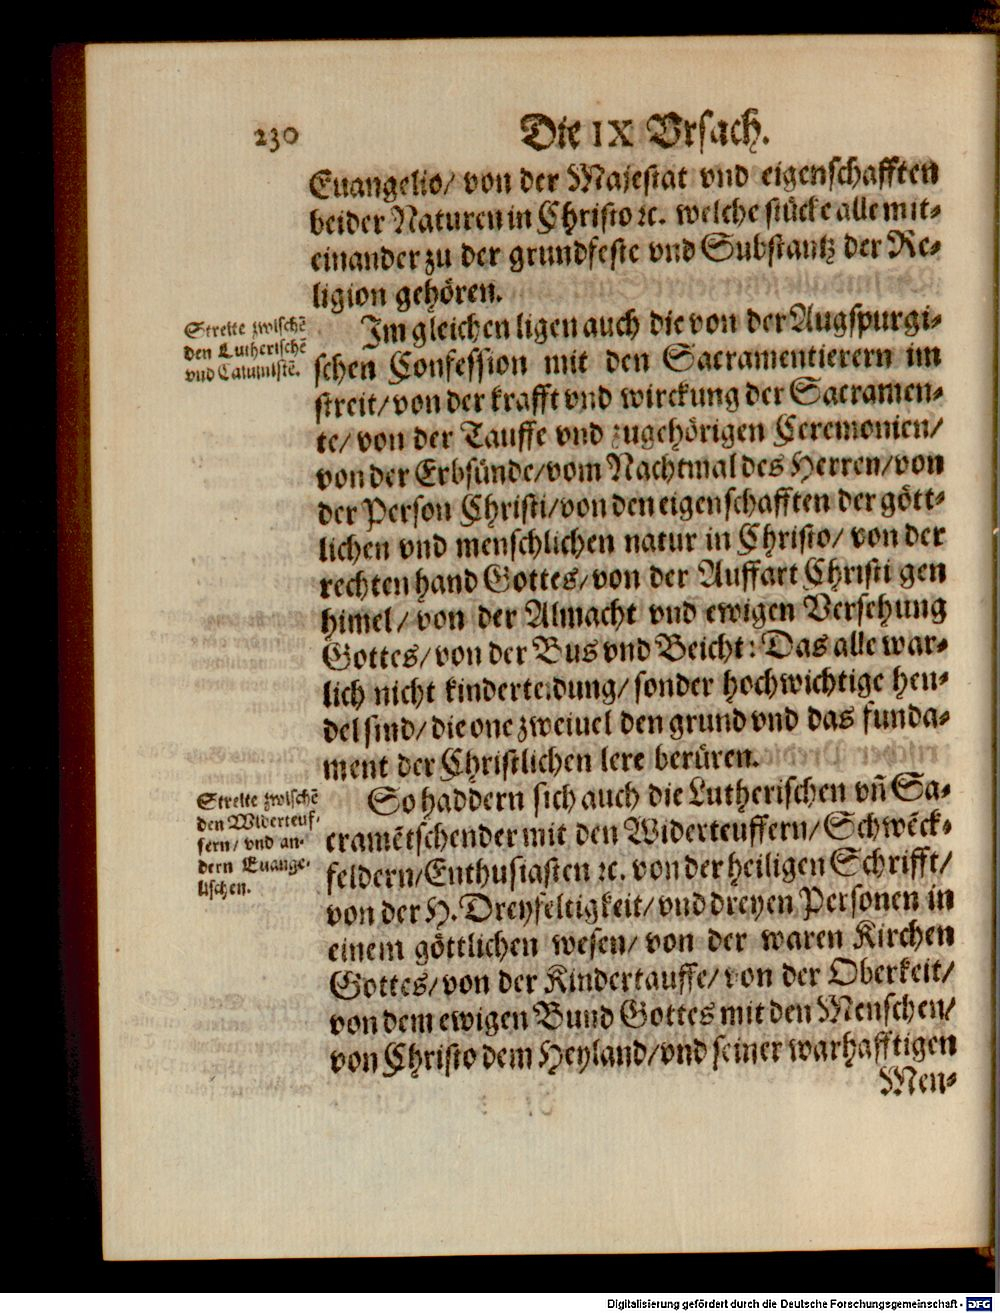 230
Die IX Vrsach.
Euangelio/ von der Majestat vnd eigenschafften
beider Naturen in Christo ꝛc. welche stücke alle mit⸗
einander zu der grundfeste vnd Substantz der Re⸗
ligion gehören.
Streite zwischẽ
den Lutherischẽ
vnd Caluinistẽ.
Im gleichen ligen auch die von der Augspurgi⸗
schen Confession mit den Sacramentierern im
streit/ von der krafft vnd wirckung der Sacramen⸗
te/ von der Tauffe vnd zugehörigen Ceremonien/
von der Erbsünde/ vom Nachtmal des Herren/ von
der Person Christi/ von den eigenschafften der gött⸗
lichen vnd menschlichen natur in Christo/ von der
rechten hand Gottes/ von der Auffart Christi gen
himel/ von der Almacht vnd ewigen Versehung
Gottes/ von der Bus vnd Beicht: Das alle war⸗
lich nicht kinderteidung/ sonder hochwichtige hen⸗
del sind/ die one zweiuel den grund vnd das funda⸗
ment der Christlichen lere berüren.
Streite zwischẽ
den Widerteuf⸗
fern/ vnd an⸗
dern Euange⸗
lischen.
So haddern sich auch die Lutherischen vñ Sa⸗
cramẽtschender mit den Widerteuffern/ Schwẽck⸗
feldern/ Enthusiasten ꝛc. von der heiligen Schrifft/
von der H. Dreyfeltigkeit/ vnd dreyen Personen in
einem göttlichen wesen/ von der waren Kirchen
Gottes/ von der Kindertauffe/ von der Oberkeit/
von dem ewigen Bund Gottes mit den Menschen/
von Christo dem Heyland/ vnd seiner warhafftigen
Men⸗
Digitalisierung gefördert durch die Deutsche Forschungsgemeinschaft - DFG